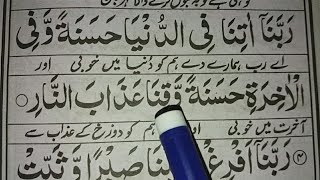 رَبَّنَآ اٰتِنَا فِی الدُّنْیَا حَسَنَةً وَّفِی
اے رب ہمارے دے ہم کو دُنیا میں خوبی اور
الْاٰخِرَةِ حَسَنَةً وَّقِنَا عَذَابَ النَّارِ ○
آخرت میں خوبی اور ہم کو دوزخ کے عذاب سے
رَبَّنَآ اَفْرِغْ صَبْرًا وَّ ثَبِّتْ